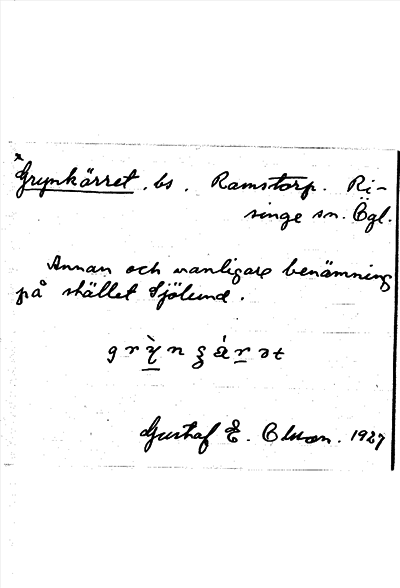 Grynkärret. bs. Ramstorp. Ri-
singe sn. Ögl.
Annan och vanligare benämning
på stället Sjölund.
Gustaf E. Olsson. 1927